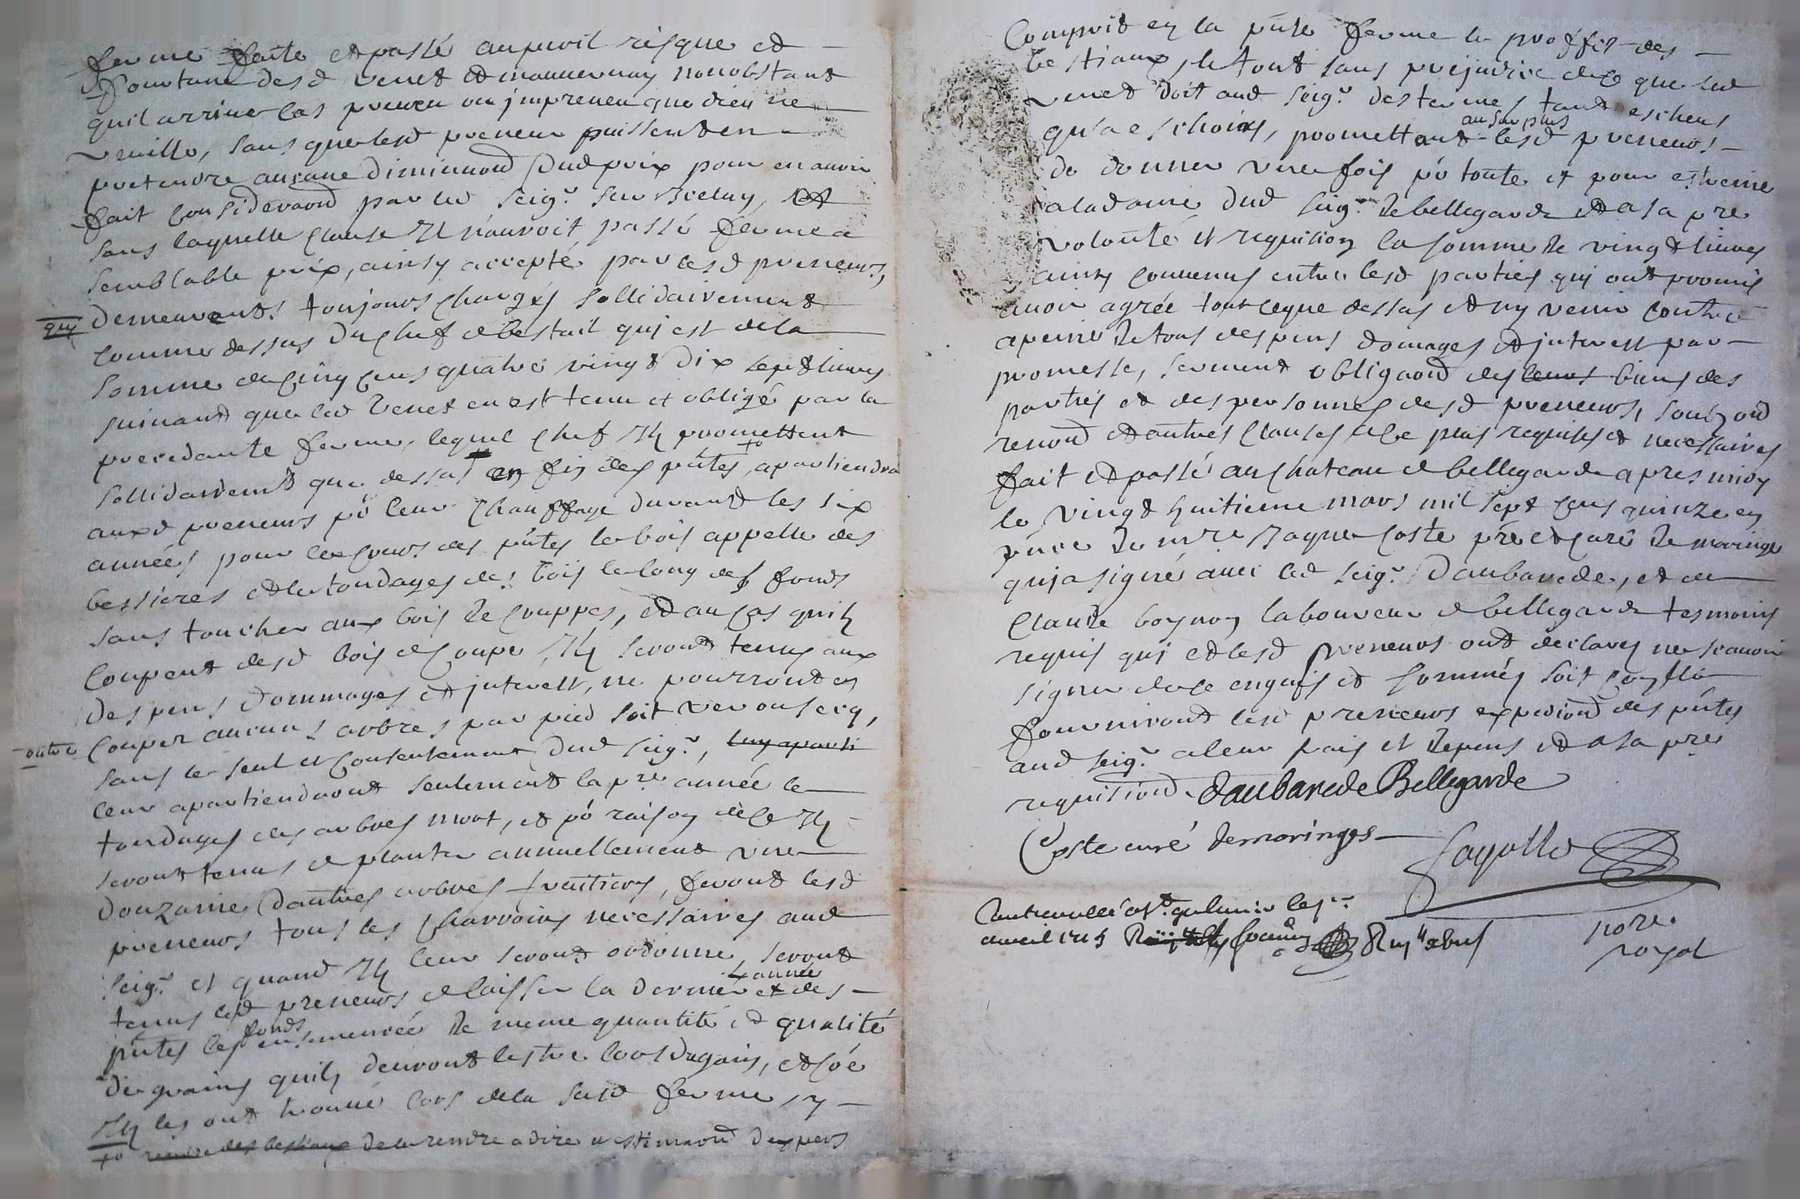 ferme faite et passé au peril risque et
fortune desd venet et mauvernay nonobstant
quil arrive cas preveu ou jmpreveu que dieu ne
veuille, sans que lesd preneur puissent en
pretendre aucune diminuond dud prix pour en avoir
fait consideraond par led seigr sur Jceluy, et
sans laquelle clause Jl nauroit passé ferme a
semblable prix, ainsy accepté par lesd preneurs,
quy demeurants toujours chargés sollidairement
comme dessus du chef de bestail qui est de la
somme de cinq cens quatre vingt dix sept livres
suivant que led Venet en est tenu et obligé par la
precedante ferme, lequel chef Jls promettent
sollidairemt que dessus en fin des pntes apartiendra
auxd preneurs pr leur chauffage durant les six
années pour le cours des pntes le bois appellé des
bessieres et les tondages des bois le long des fonds
sans toucher aux bois de couppes, et au cas quils
coupent desd bois de coupe Jls seront tenus aux
despens dommages et jnterest, ne pourront en
outre couper aucuns arbres par pied soit verd ou secq,
sans le seul et consentement dud seigr,
leur apartiendront seulement la pre année les
tondages des arbres mort, et pr raison de ce Jls
seront tenus de planter annuellement une
douzaine dautres arbres fruitiers, feront lesd
preneurs tous les charrois necessaires aud
seigr et quand Jl leur seront ordonne, seront
tenus lesd preneurs de laisser la derniere année des
pntes lesd fonds ensemencée de meme quantité et qualité
de grains quils devront lestre lors dugain, et coe
Jls les ont trouvé lors de la susd ferme, y
de le rendre a dire et estimaond dexpers
Compris en la pnte ferme le proffit des
bestiaux, le tout sans prejudice de ce que led
venet doit aud seigr des termes tant escheus
qua eschoir, promettant au surplus lesd preneurs
de donner une fois pr toute et pour estreine
a la dame dud seigr de bellegarde et a sa pre
volonté et requition la somme de vingt livres
ainsy convenus entre lesd parties qui ont promis
avoir agrée tout ce que dessus et ny venir contre
a peine de tous despens domages et jnterest par
promesse, serment obligaond des biens des
parties et des personnes desd preneurs, soubzond
renond et autres clauses a ce plus requises et necessaires
fait et passé au chateau de bellegarde apres midy
le vingt huitieme mars mil sept cens quinze en
pnce de mre Jaque Coste pre et curé de maringe
qui a signé avec led seigr Daubarede, et de
Claude boynoy laboureur de bellegarde tesmoins
requis qui et lesd preneurs ont declaré ne scavoir
signer de ce enquis et sommés soit conllé
fourniront lesd preneurs expediond des pntes
aud seigr a leur frais et depens et a sa pre
requisiond. Daubarede Bellegarde
Coste curé de maringes
Fayolle
nore
royal
avril 1715